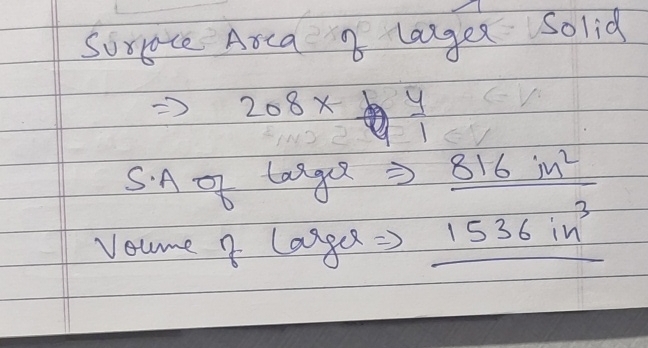 Surface Area of larger Solid
=> 208 × 4/1
S.A of larger => 816 in²
Voume of larger => 1536 in³